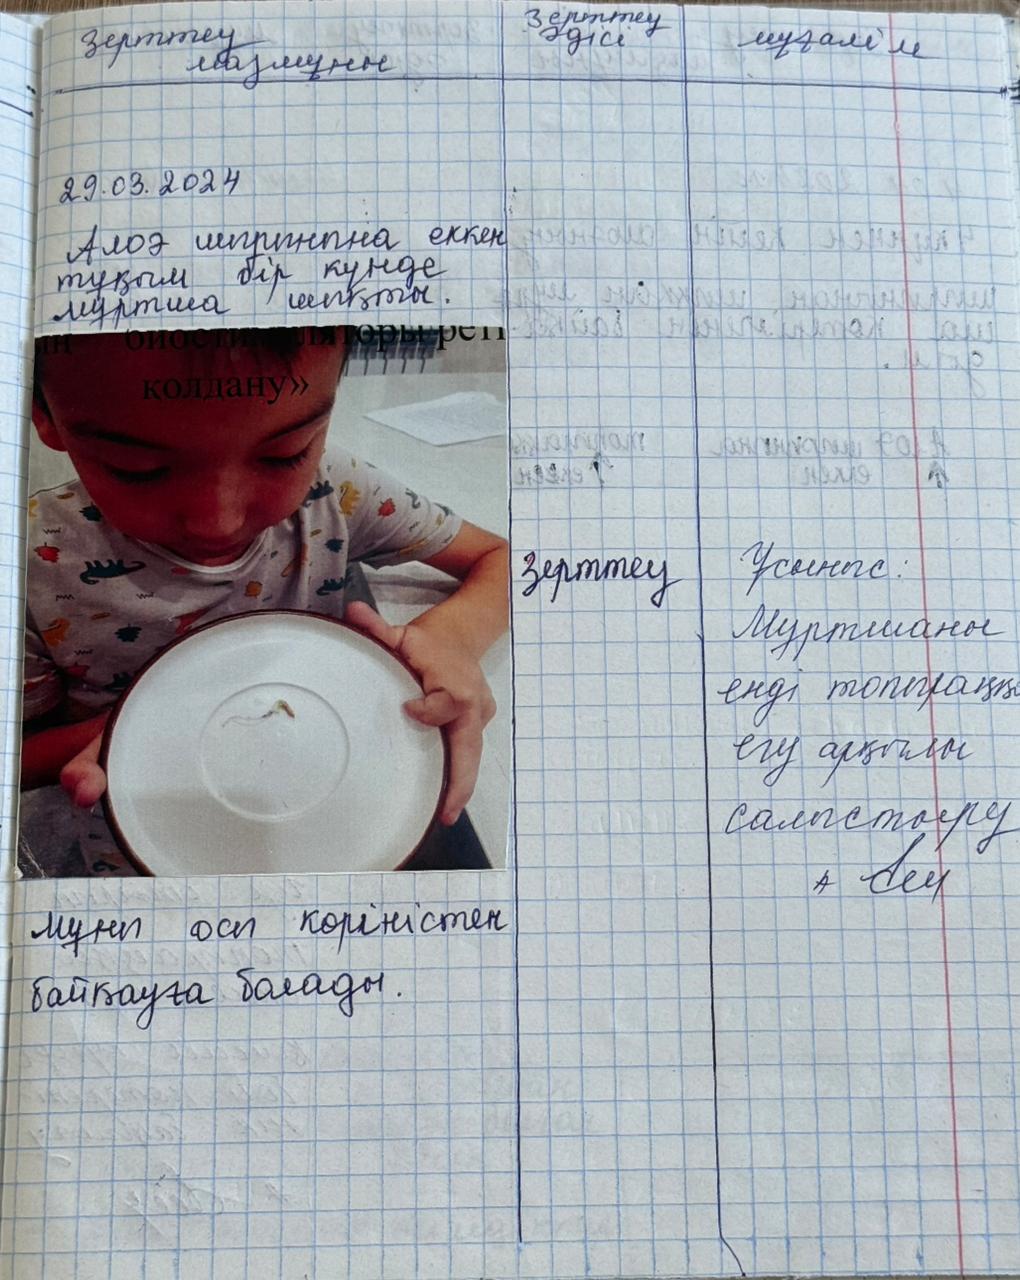 Зерттеу
мазмұны
Зерттеу
әдісі
мұғалім
29.03.2024
Алоэ шырынына еккен
тұқым бір күнде
мұртша шықты.
биостимуляторы реті
қолдану»
Зерттеу
Ұсыныс:
Мұртшаны
енді топыраққа
егу арқылы
салыстыру
Мұны осы көріністен
байқауға болады.